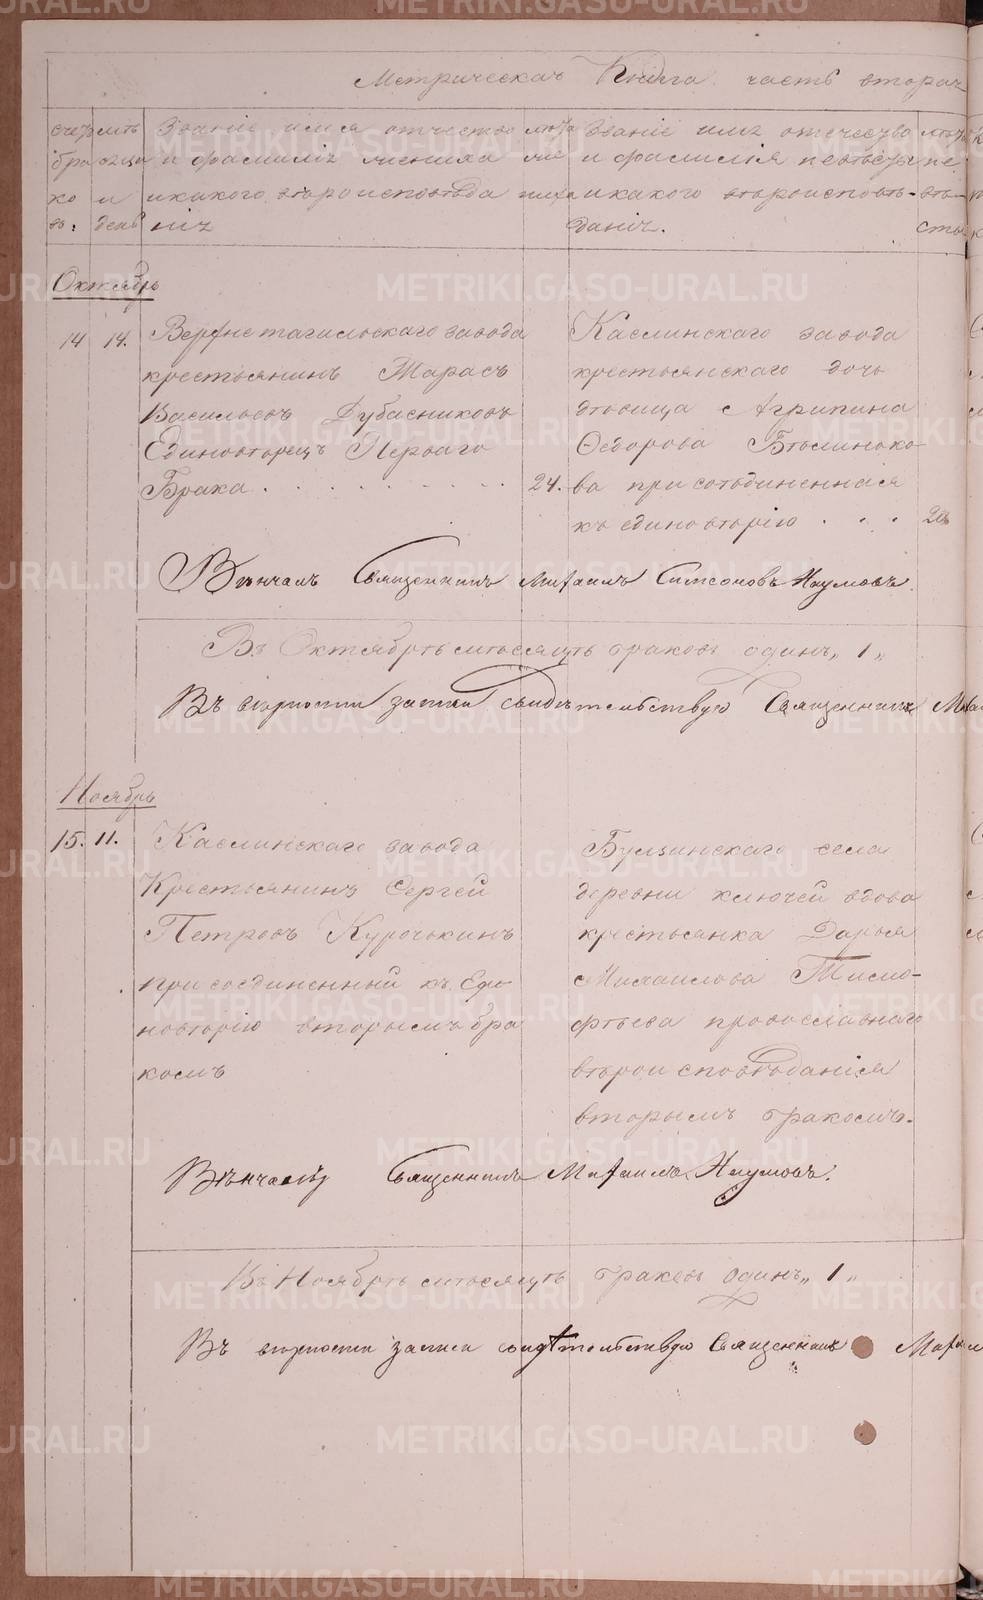 Метрическая Книга часть вторая
счетъ
бра
ко
въ.
мѣ
сяцъ
и
день
Званіе имя отчество
и фамилія жениха
и какого вѣроисповѣда
нія
лѣта
же
ниха
Званіе имя отечество
и фамилія невѣсты
и какого вѣроисповѣ-
данія.
лѣта
не
вѣ-
сты
Октябрь
14 14.
Верхнетагильскаго завода
крестьянинъ Тарасъ
Васильевъ Дубасниковъ
Единовѣрецъ Перваго
Брака . . . . . . . . . 24.
Каслинскаго завода
крестьянскаго дочь
дѣвица Агрипина
Ѳедорова Блиноко
ва присоѣдиненная
къ единовѣрію . . . 20.
Вѣнчалъ Священникъ Михаилъ Симеоновъ Наумовъ.
Въ Октябрѣ мѣсяцѣ браковъ одинъ „1„
Въ вѣрности записи свидѣтельствую Священникъ
Ноябрь
15. 11.
Каслинскаго завода
Крестьянинъ Сергей
Петровъ Курочькинъ
присоединенный къ Еди
новѣрію вторымъ бра
комъ
Булзинскаго села
деревни ключей вдова
крестьянка Дарья
Михаилова Тимо-
фѣева провославнаго
вѣроисповѣданія
вторымъ бракомъ.
Вѣнчалъ Священникъ Михаилъ Наумовъ.
Въ Ноябрѣ мѣсяцѣ браковъ Одинъ „1„
Въ вѣрности записи свидѣтельствую Священникъ
METRIKI.GASO-URAL.RU